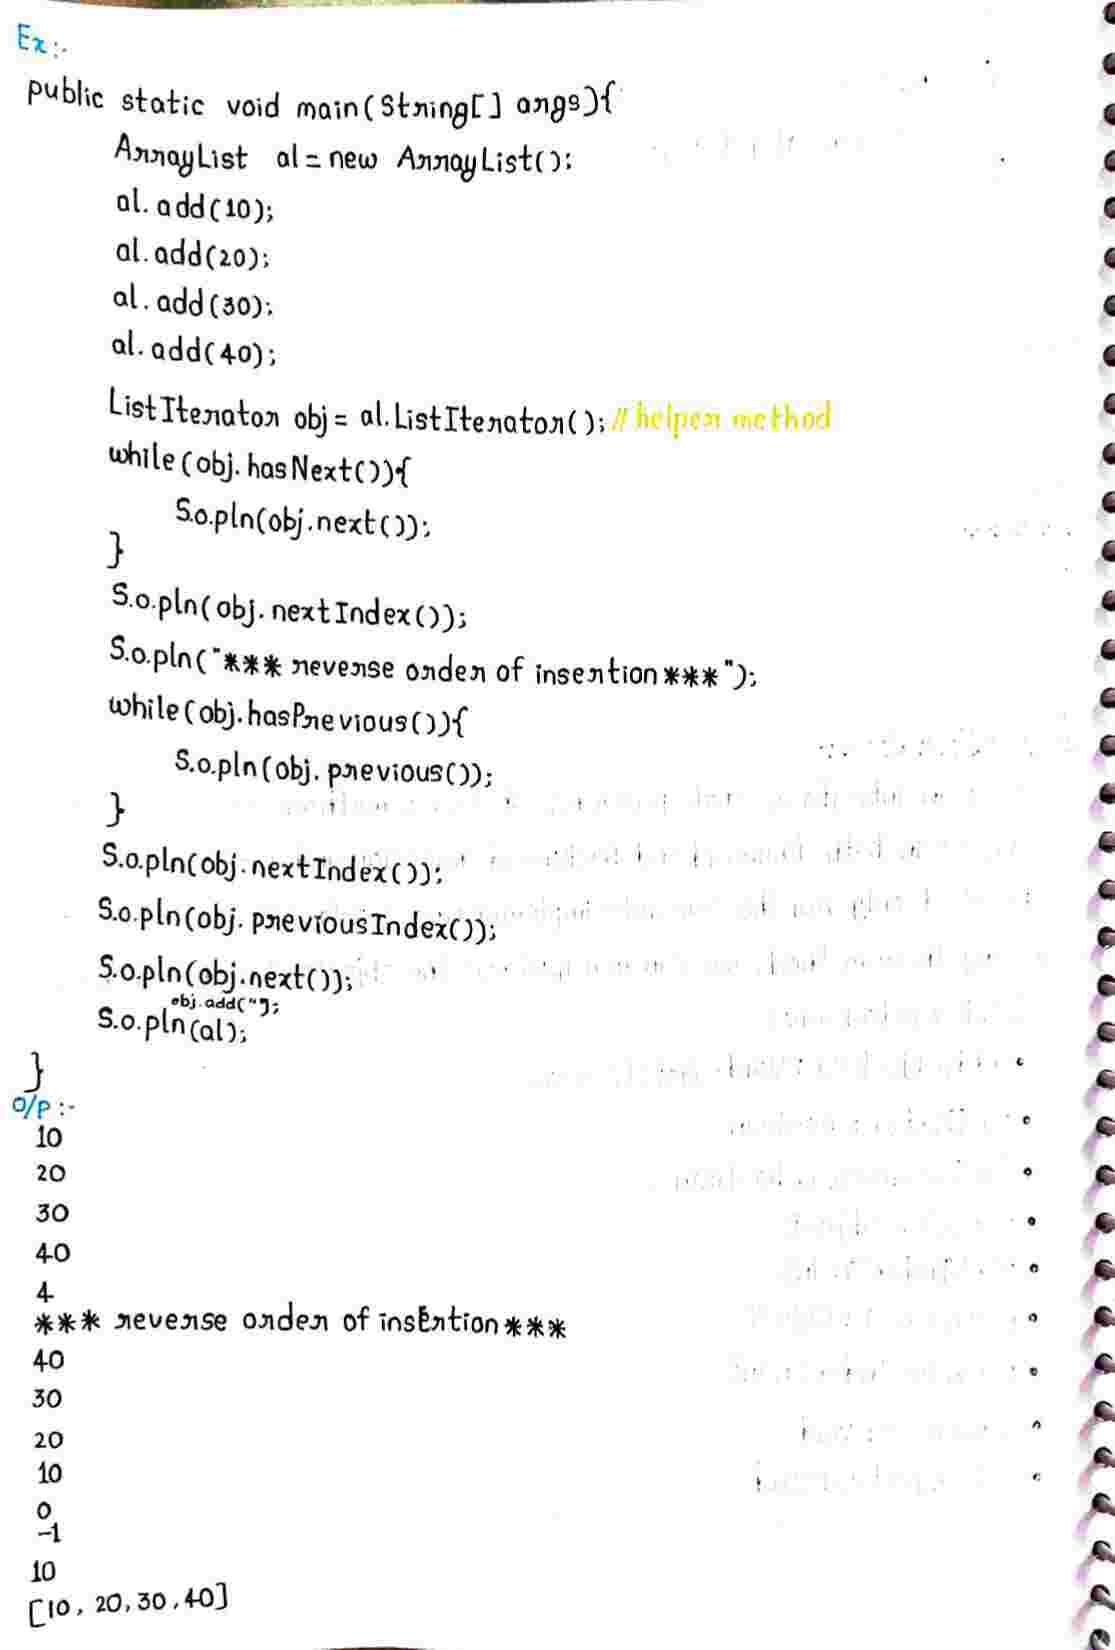 Ex:-
public static void main(String[] args){
ArrayList al = new ArrayList();
al.add(10);
al.add(20);
al.add(30);
al.add(40);
ListIterator obj = al.ListIterator(); // helper method
while(obj.hasNext()){
S.o.pln(obj.next());
}
S.o.pln(obj.nextIndex());
S.o.pln("*** reverse order of insertion***");
while(obj.hasPrevious()){
S.o.pln(obj.previous());
}
S.o.pln(obj.nextIndex());
S.o.pln(obj.previousIndex());
S.o.pln(obj.next());
obj.add("");
S.o.pln(al);
}
O/P :-
10
20
30
40
4
*** reverse order of insErtion***
40
30
20
10
0
-1
10
[10, 20, 30, 40]